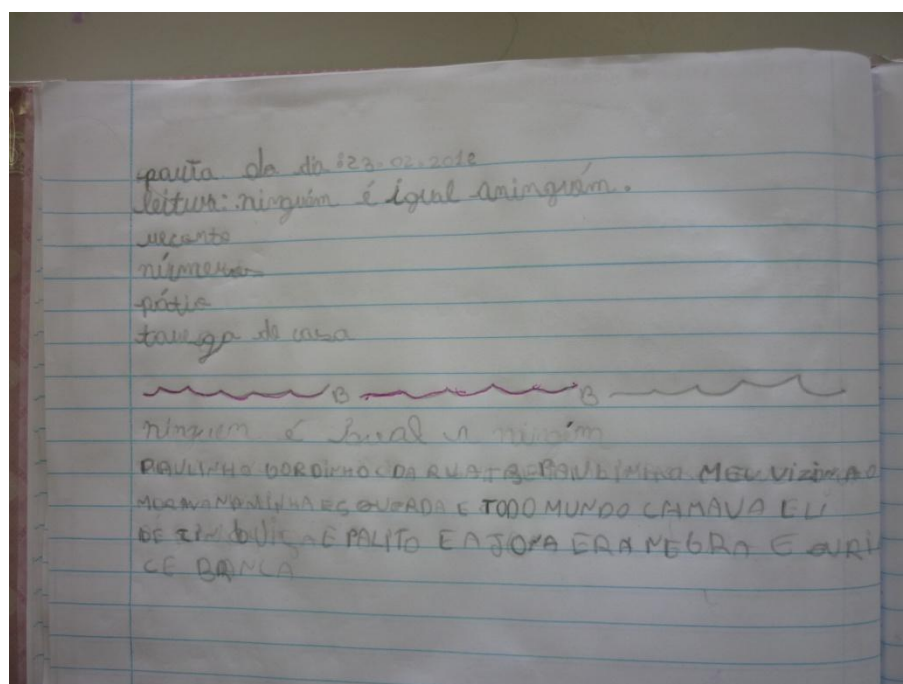 pauta da dia :23.02.2018
leitura: ninguém é igual aninguém.
recanto
números
pátio
tarega de casa
B B
é igual a
PAULINHO GORDINHO DA RUA MEU VIZINHO
MORAVA NA MINHA ESQUERDA E TODO MUNDO CAMAVA ELI
DE E PALITO E A JOPA ERA NEGRA E OURI
CE BRANCA